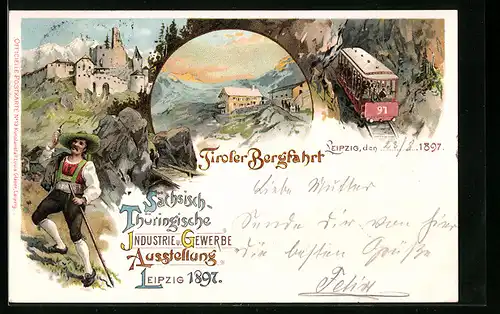 Tiroler Bergfahrt
91
LEIPZIG, den 22/8. 1897.
Sächsisch-
Thüringische
INDUSTRIE u. GEWERBE
Ausstellung
LEIPZIG 1897.
Liebe Mutter
Sende dir von hier
die besten Grüße
Felix
OFFICIELLE POSTKARTE